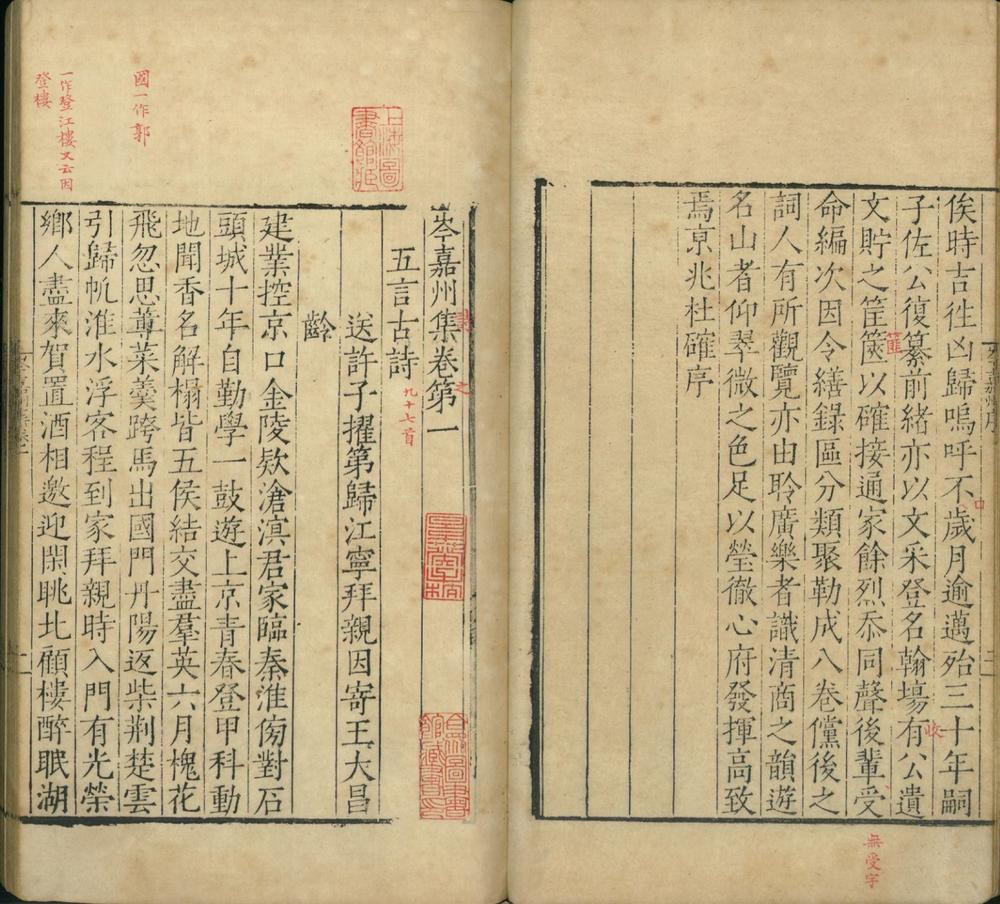 俟時吉徃凶歸嗚呼不歲月逾邁殆三十年嗣
口
子佐公復纂前緒亦以文采登名翰場有公遺
收
文貯之筐篋以確接通家餘烈忝同聲後輩受
篚
無受字
命編次因令繕錄區分類聚勒成八卷儻後之
詞人有所觀覽亦由聆廣樂者識清商之韻遊
名山者仰翠微之色足以瑩徹心府發揮高致
焉京兆杜確序
岑嘉州集卷第一
之
上海圖
書館藏
五言古詩
九十七首
送許子擢第歸江寧拜親因寄王大昌
齡
建業控京口金陵欵滄溟君家臨秦淮傍對石
頭城十年自勤學一鼓遊上京青春登甲科動
地聞香名解榻皆五侯結交盡羣英六月槐花
飛忽思蓴菜羹跨馬出國門丹陽返柴荆楚雲
國一作郭
引歸帆淮水浮客程到家拜親時入門有光榮
鄉人盡來賀置酒相邀迎閑眺北顧樓醉眠湖
一作登江樓又云因
登樓